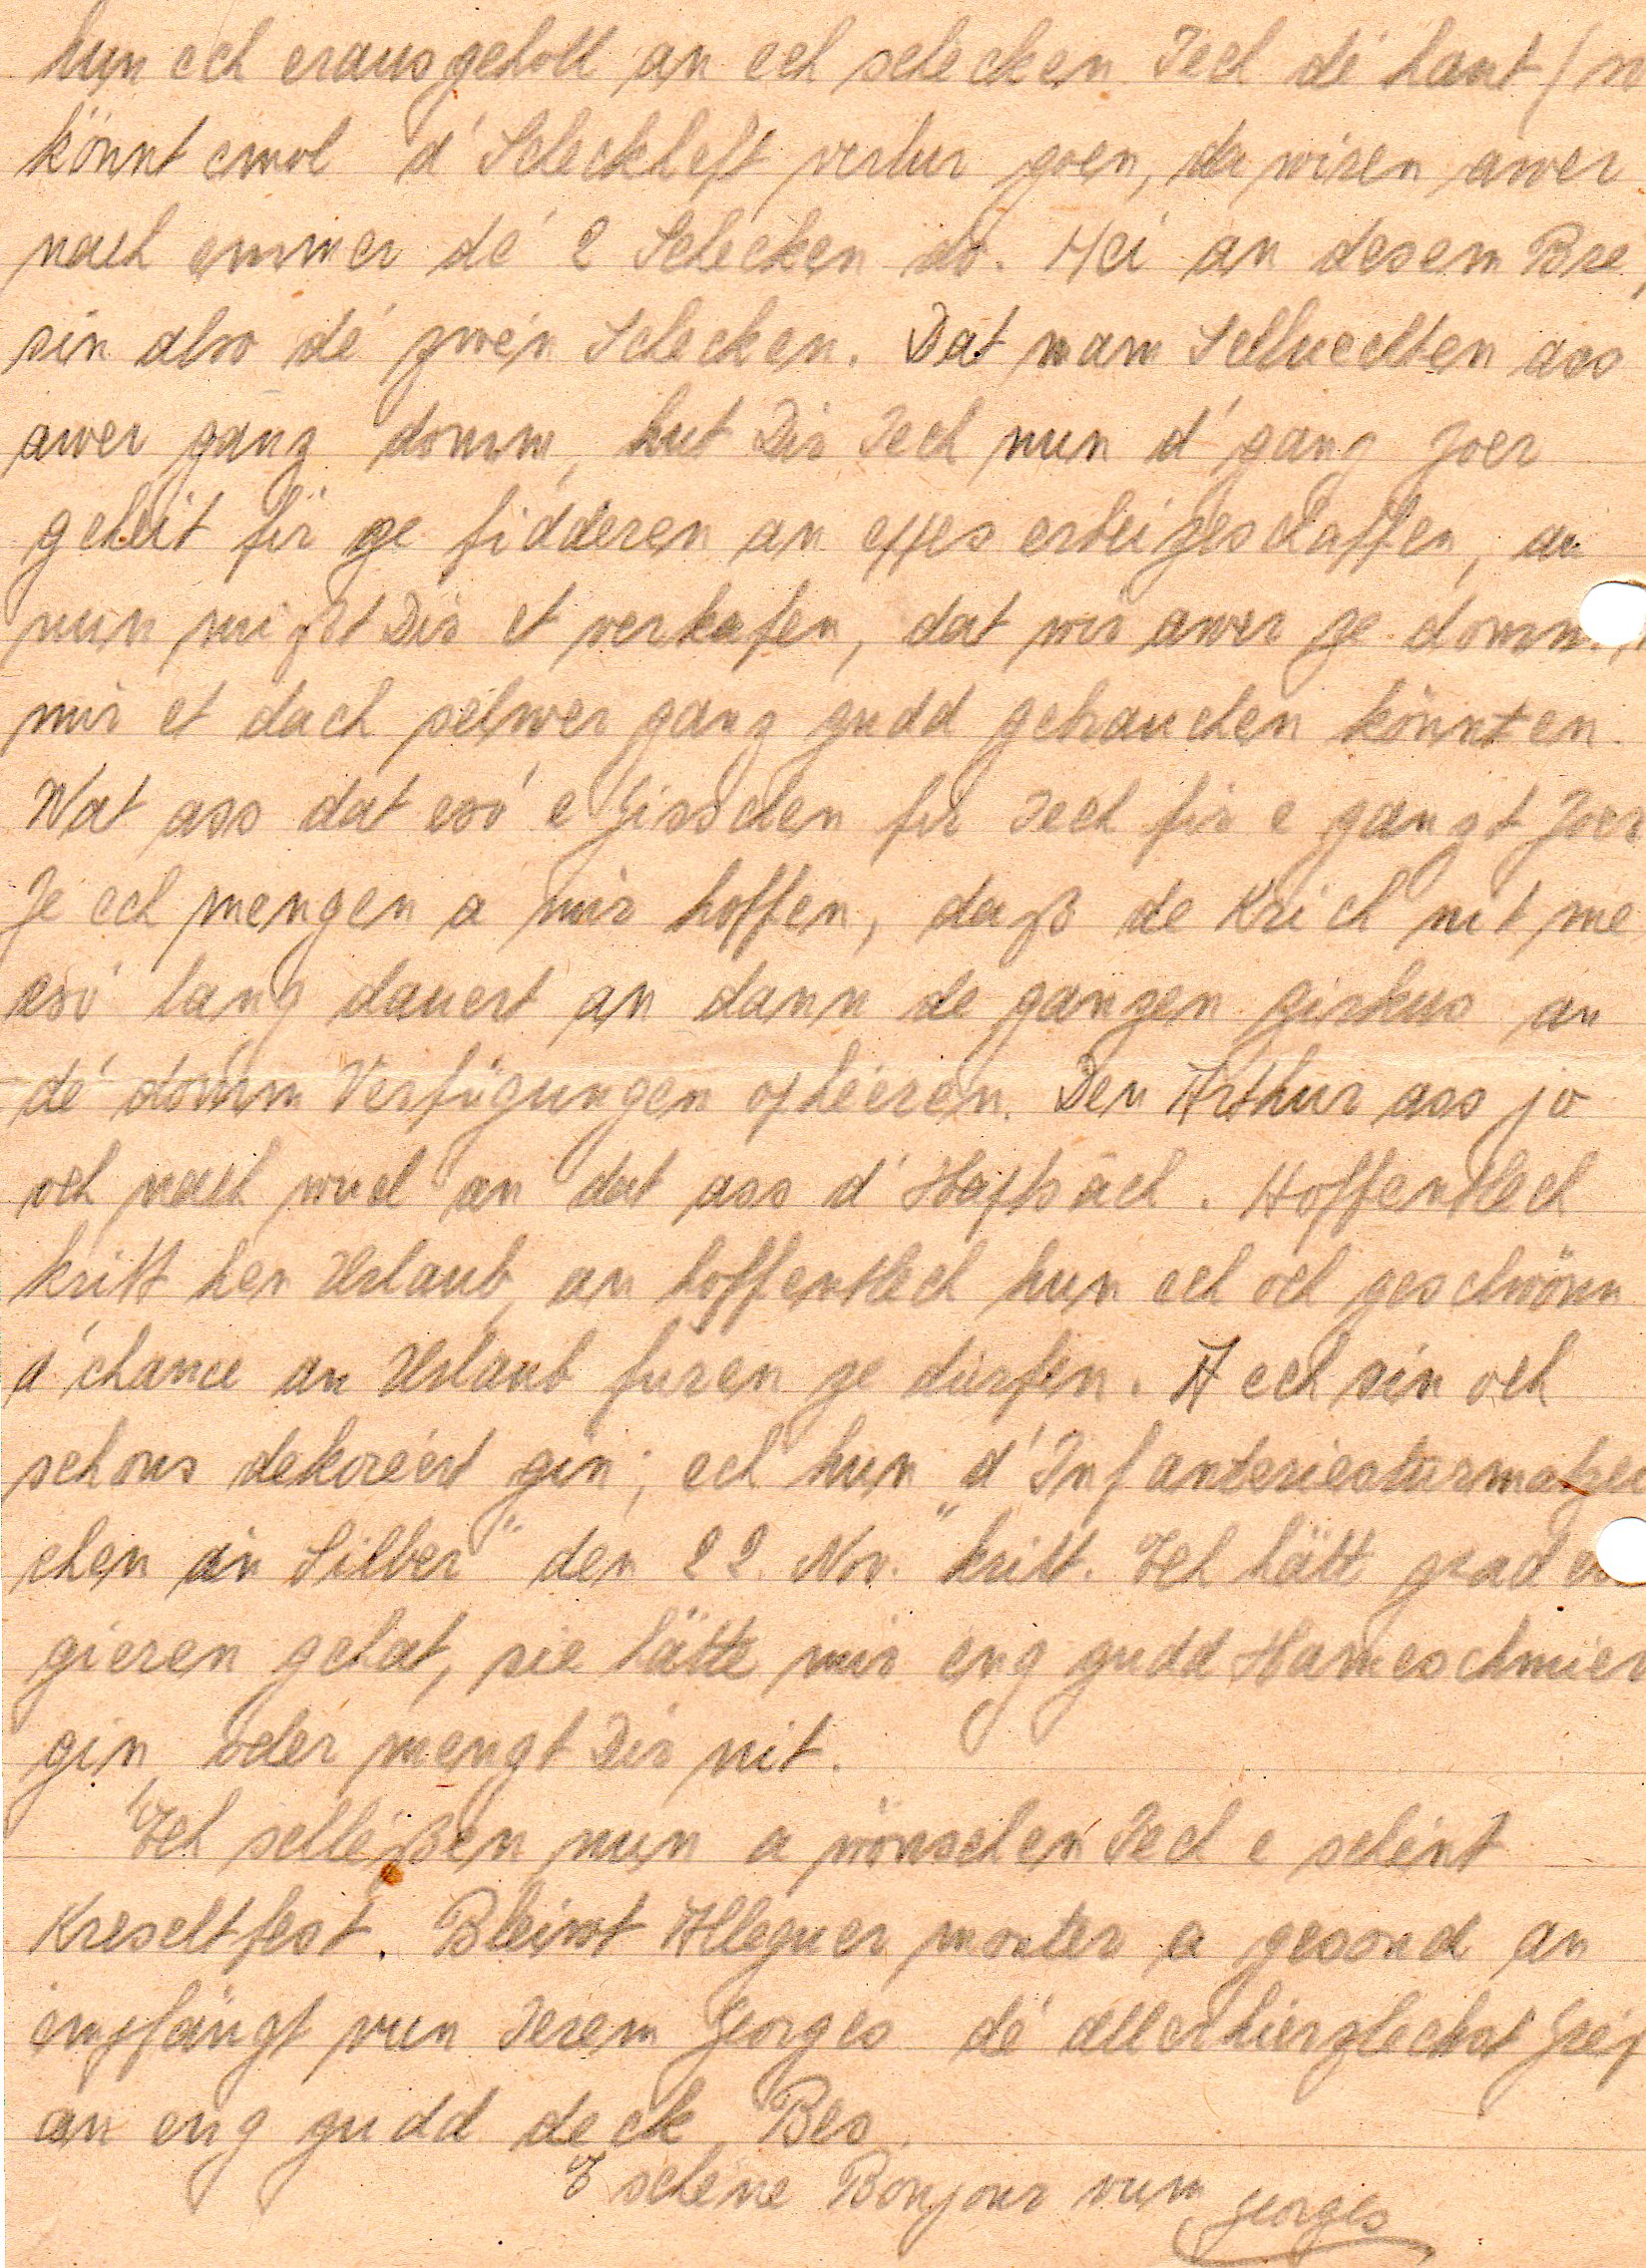 hun ech erausgeholl an ech schecken Iech dé haut (
könnt emol d'Scheckheft verlur goen, da wiren awer
nach emmer dé 2 Schecken do. Hei an desem Bré
sin also dé zwén Schecken. Dat mam Schluechten ass
awer ganz domm, hut Dir Iech nun d'ganz Joer
geheit fir ze fidderen an eppes erbeizeschaffen, an
nun misst Dir et verkafen, dat wir awer ze domm.
mir et dach selwer ganz gudd gebrauchen könnten.
Wat ass dat esó e Gisschen fir Iech fir e ganzt Joer
Je ech mengen a mir hoffen, daß de Krich nit mé
esó lang dauert an dann de ganzen Zirkus an
dé domm Verfügungen ophéeren. Den Arthur ass jo
och nach wuel an dat ass d'Haptsach. Hoffentlech
kritt hen Urlaub, an hoffentlech hun ech och geschwönn
d'chance an Urlaub furen ze dürfen. A ech sin och
schons dekoréert gin; ech hun "d'Infanteriesturmabzei
chen in Silber" den 22. Nov. kritt. Ech hätt grad
gieren gehat, sie hätte mir eng gudd Hameschmier
gin, oder mengt Dir nit.
Ech schléßen nun a wönschen Iech e schént
Kreschtfest. Bleiwt Alleguer monter a gesond an
empfängt vun Ierem Georges dé allerhierzlechst Gréß
an eng gudd deck Bes.
E schene Bonjour vum Georges